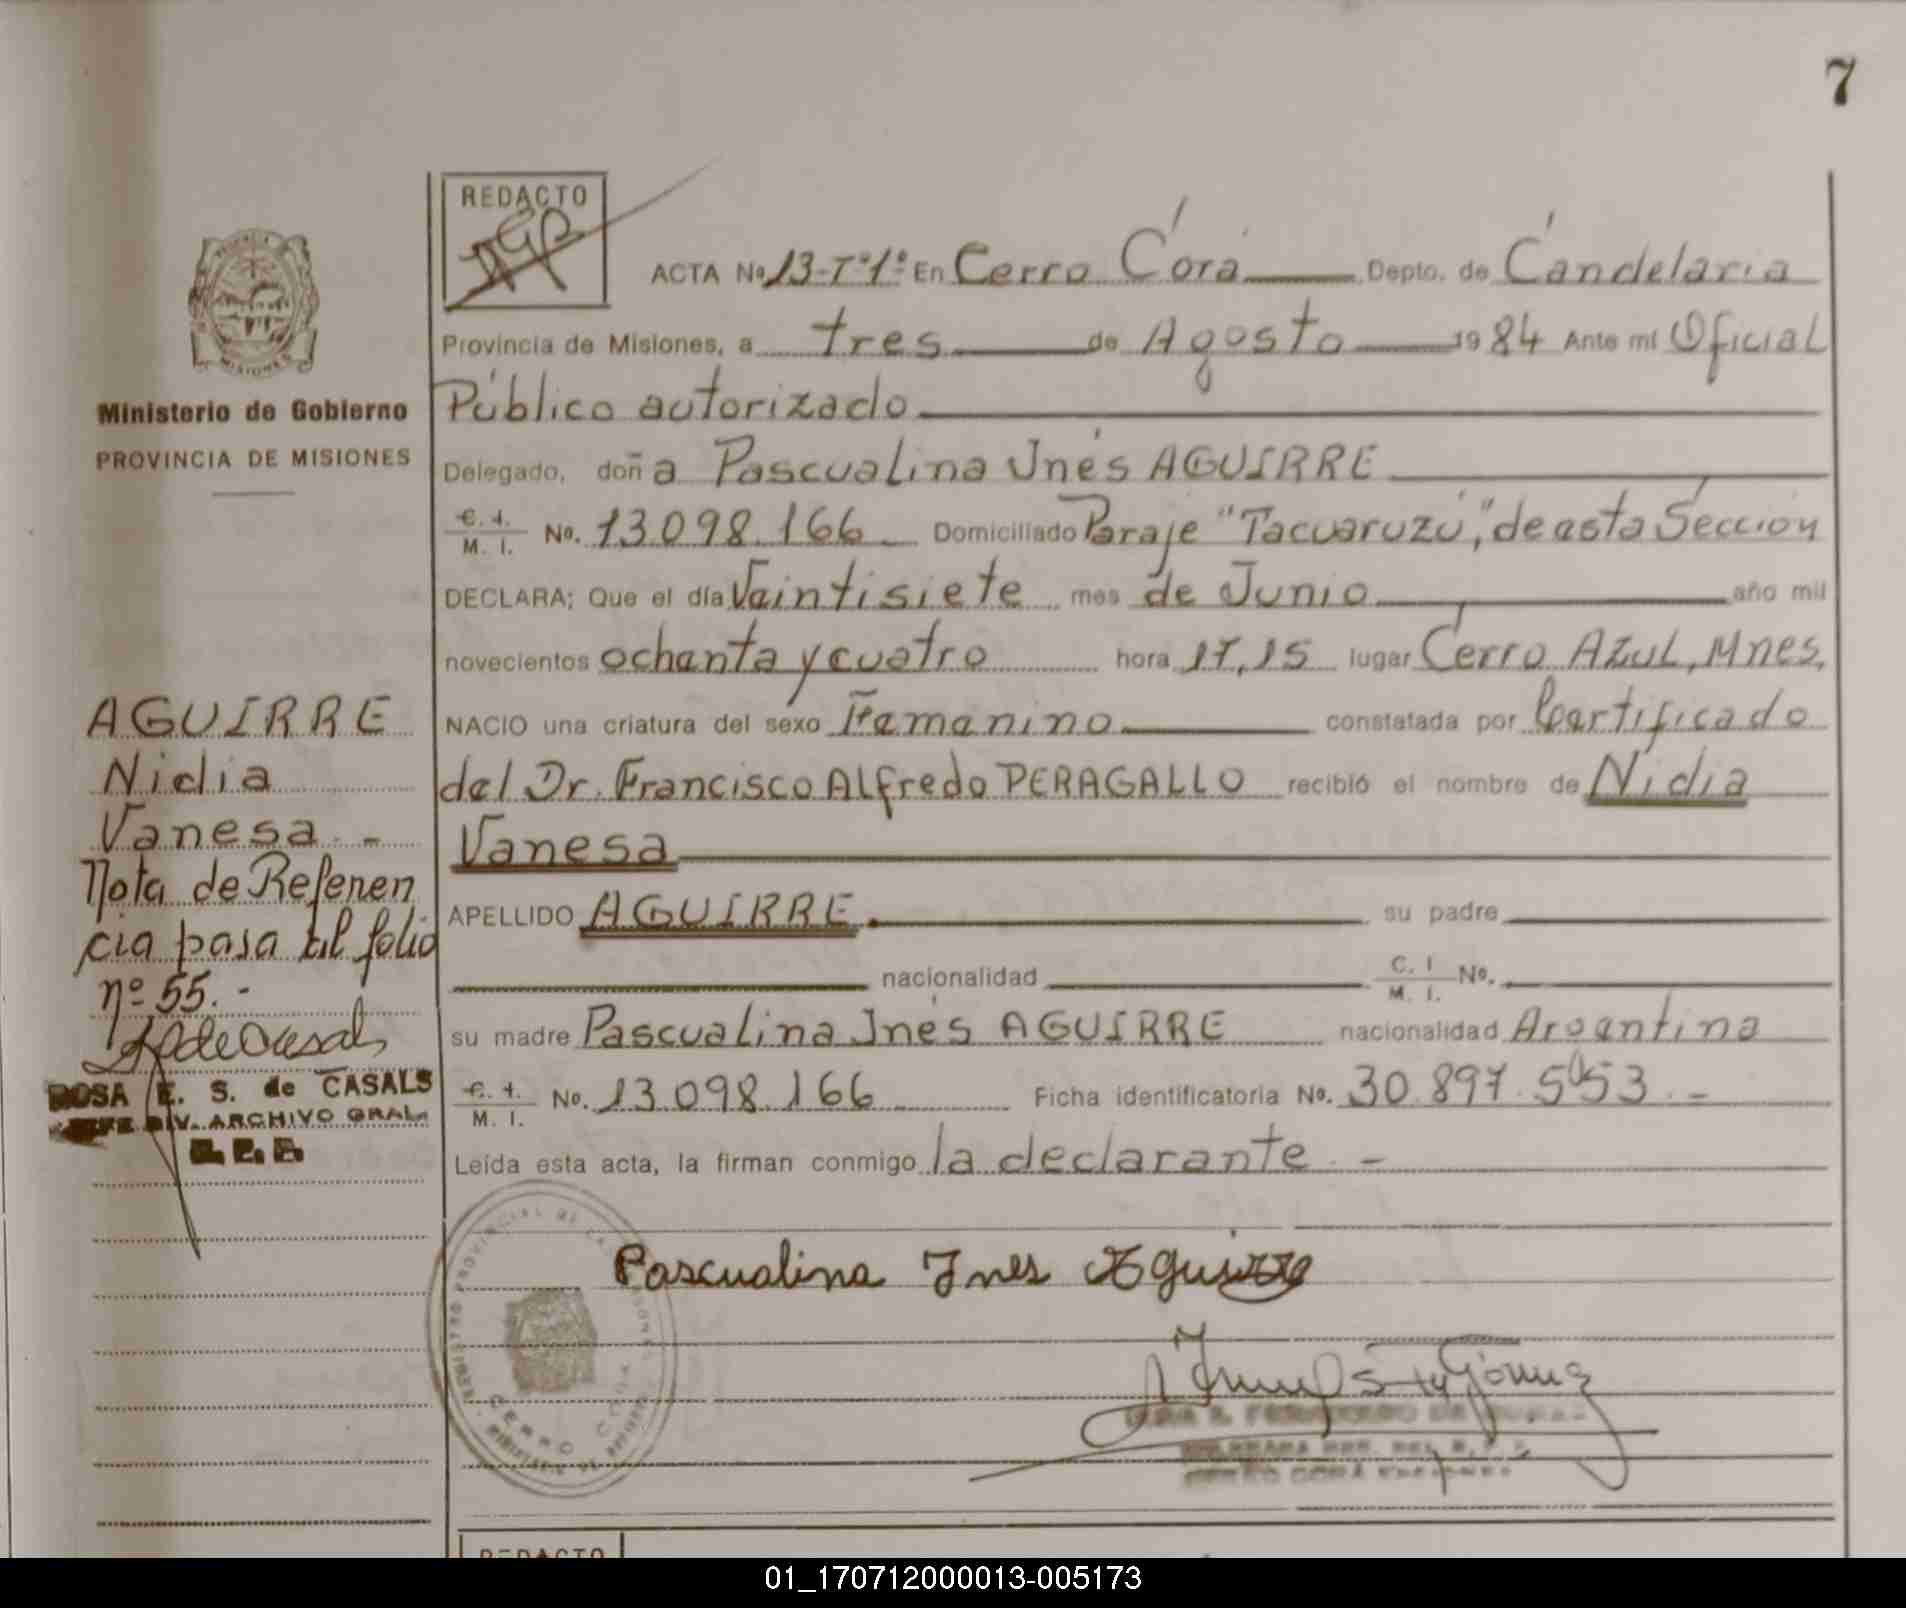 7
REDACTO
ACTA No 13-Tº1º En Cerro Corá Depto. de Candelaria
Provincia de Misiones, a tres de Agosto 1984 Ante mí Oficial
Ministerio de Gobierno
Público autorizado
PROVINCIA DE MISIONES
Delegado, doña Pascualina Inés AGUIRRE
C. I.
M. I. No. 13.098.166 Domiciliado Paraje "Tacuaruzú", de esta Sección
DECLARA; Que el día Veintisiete mes de Junio año mil
novecientos ochenta y cuatro hora 17,15 lugar Cerro Azul, Mnes,
AGUIRRE
NACIO una criatura del sexo Femenino constatada por Certificado
Nidia
del Dr. Francisco Alfredo PERAGALLO recibió el nombre de Nidia
Vanesa.-
Vanesa
Nota de Referen
cia pasa al folio
nº 55.-
APELLIDO AGUIRRE su padre
nacionalidad C. I
M. I. No.
su madre Pascualina Inés AGUIRRE nacionalidad Argentina
ROSA E. S. de CASALS
JEFE DIV. ARCHIVO GRAL.
C. I.
M. I. No. 13.098.166 Ficha identificatoria No. 30.897.553.-
Leída esta acta, la firman conmigo la declarante.-
Pascualina Ines Aguirre
CERRO CORA
REDACTO
01_170712000013-005173